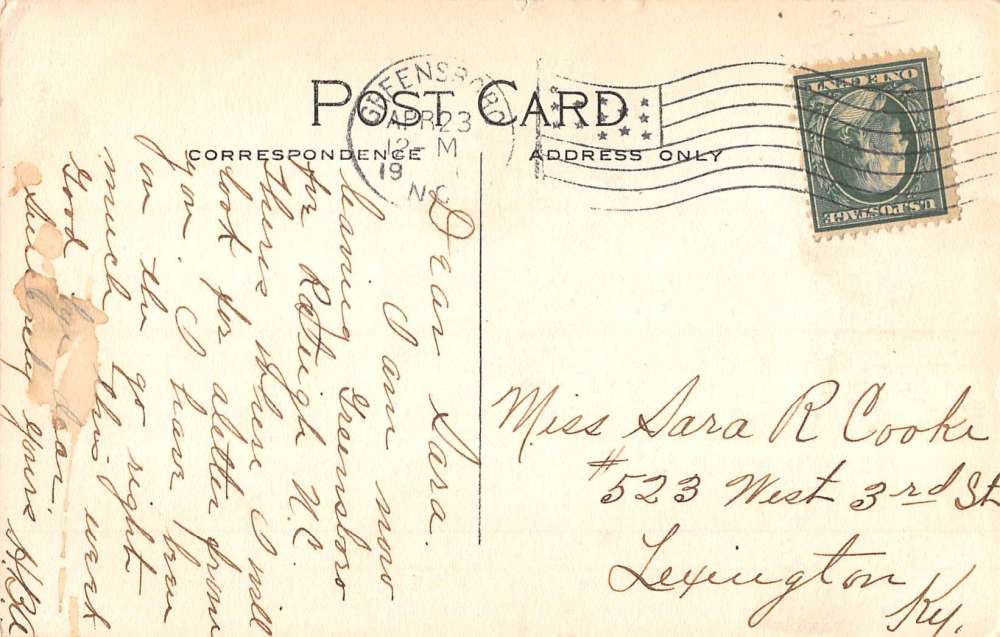 POST CARD
CORRESPONDENCE
ADDRESS ONLY
GREENSBORO
APR 23
12-M
19
N.C.
ONE CENT
U.S. POSTAGE
Dear Sara.
I am now
leaving Greensboro
for Raleigh N.C
Theris where I will
look for aletter from
you. I have been
on the go right
much this week
Good bye dear.
Sincerely yours
Miss Sara R Cooke
#523 West 3rd St
Lexington
Ky.